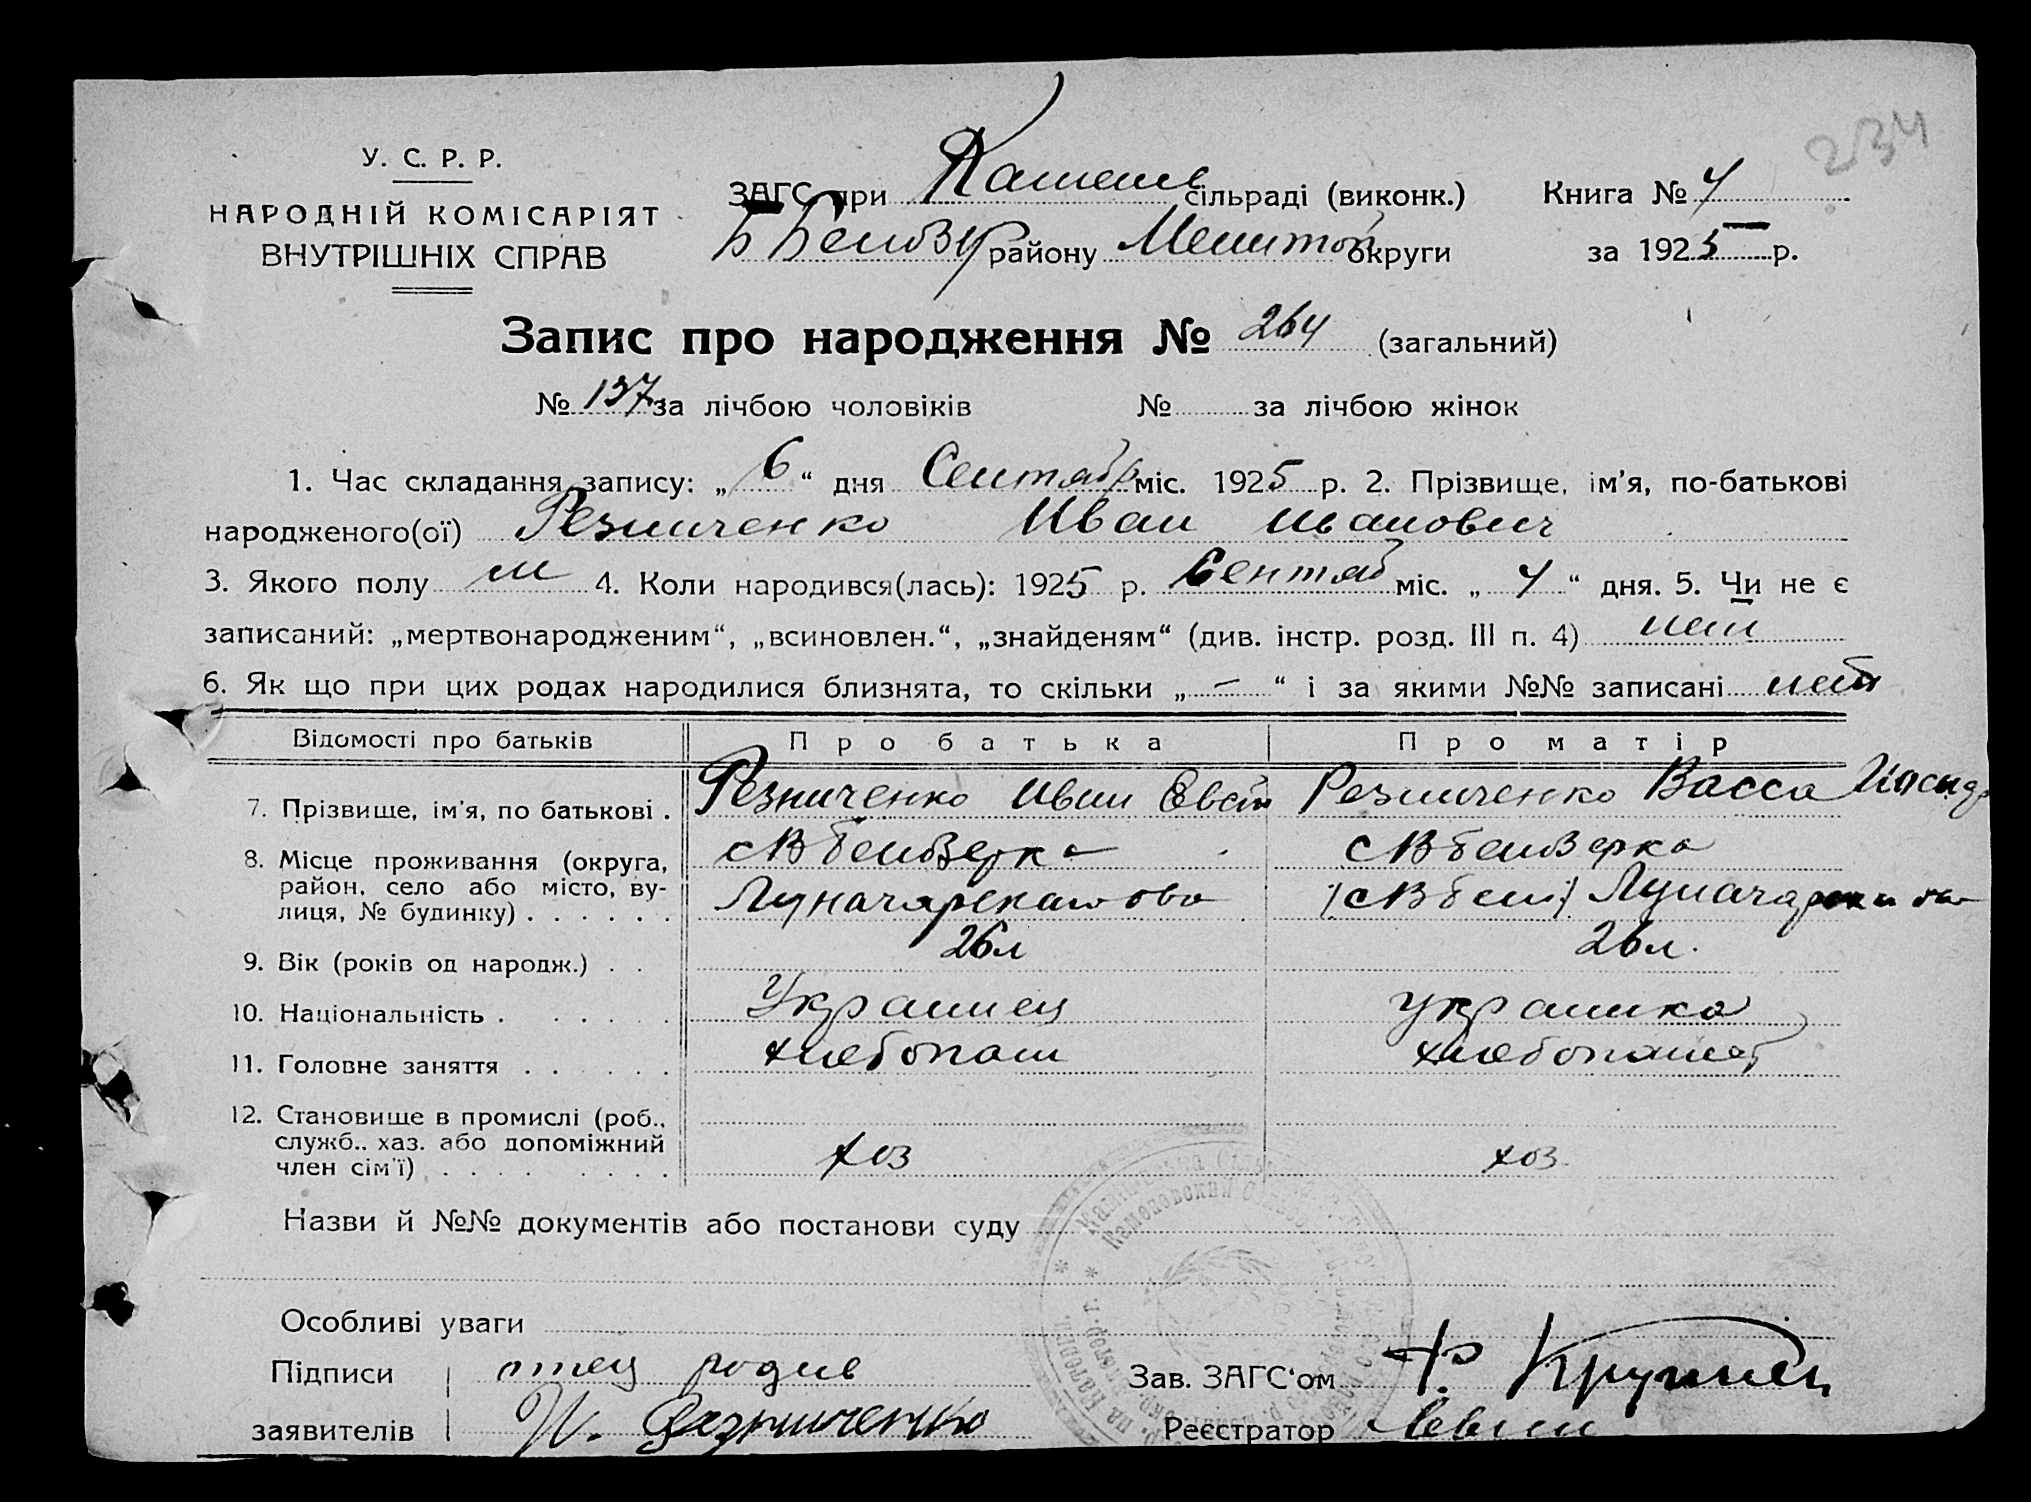 234
У. С. Р. Р.
НАРОДНІЙ КОМІСАРІЯТ
ВНУТРІШНІХ СПРАВ
ЗАГС при Камен сільраді (виконк.) Книга №
району Мелитоп округи за 1925 р.
Запис про народження № 264 (загальний)
№ 137 за лічбою чоловіків № за лічбою жінок
1. Час складання запису: „ 6 “ дня Сентябр міс. 1925 р. 2. Прізвище, ім'я, по-батькові
народженого(ої) Резниченко Иван Иванович
3. Якого полу м 4. Коли народився(лась): 1925 р. Сентяб міс. „ 4 “ дня. 5. Чи не є
записаний: „мертвонародженим“, „всиновлен.“, „знайденям“ (див. інстр. розд. III п. 4) нет
6. Як що при цих родах народилися близнята, то скільки „ — “ і за якими №№ записані нет
Відомості про батьків Про батька Про матір
7. Прізвище, ім'я, по батькові . Резниченко Иван Евст Резниченко Васса
8. Місце проживання (округа, район, село або місто, вулиця, № будинку) . . . . . .
9. Вік (років од народж.) . . 26л 26л.
10. Національність . . . . . . Украинец украинка
11. Головне заняття . . . . . . хлебопаш хлебопашес
12. Становище в промислі (роб., служб., хаз. або допоміжний член сім'ї) . . . . . . . . . хоз хоз
Назви й №№ документів або постанови суду
Особливі уваги
Підписи отец родив Зав. ЗАГС'ом
заявителів И. Резниченко Реєстратор